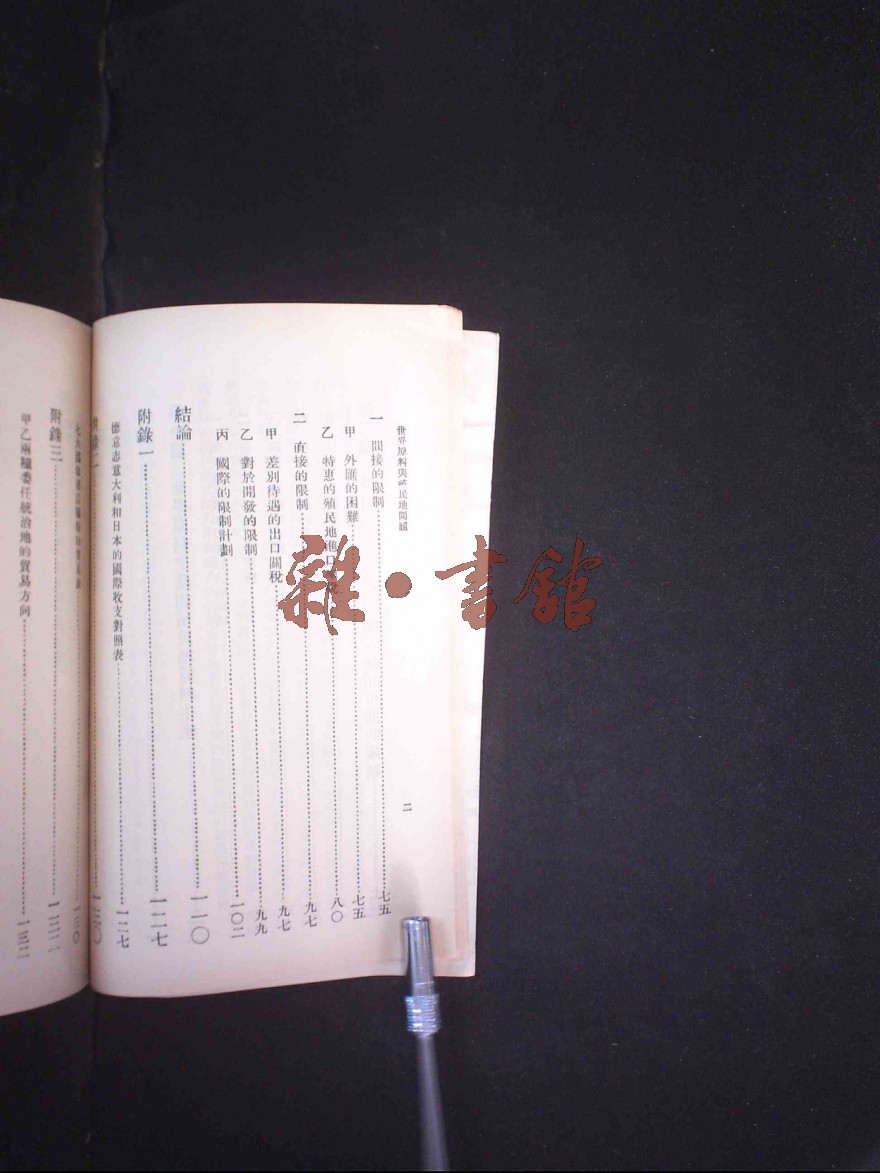 世界原料與殖民地問題
二
一 間接的限制 七五
甲 外匯的困難 七五
乙 特惠的殖民地進口 八〇
二 直接的限制 九七
甲 差別待遇的出口關稅 九七
乙 對於開發的限制 九九
丙 國際的限制計劃 一〇二
結論 一一〇
附錄一 一二七
德意志意大利和日本的國際收支對照表 一二七
附錄二 一三〇
一三〇
附錄三 一三二
甲乙兩種委任統治地的貿易方向 一三二
雜·書館